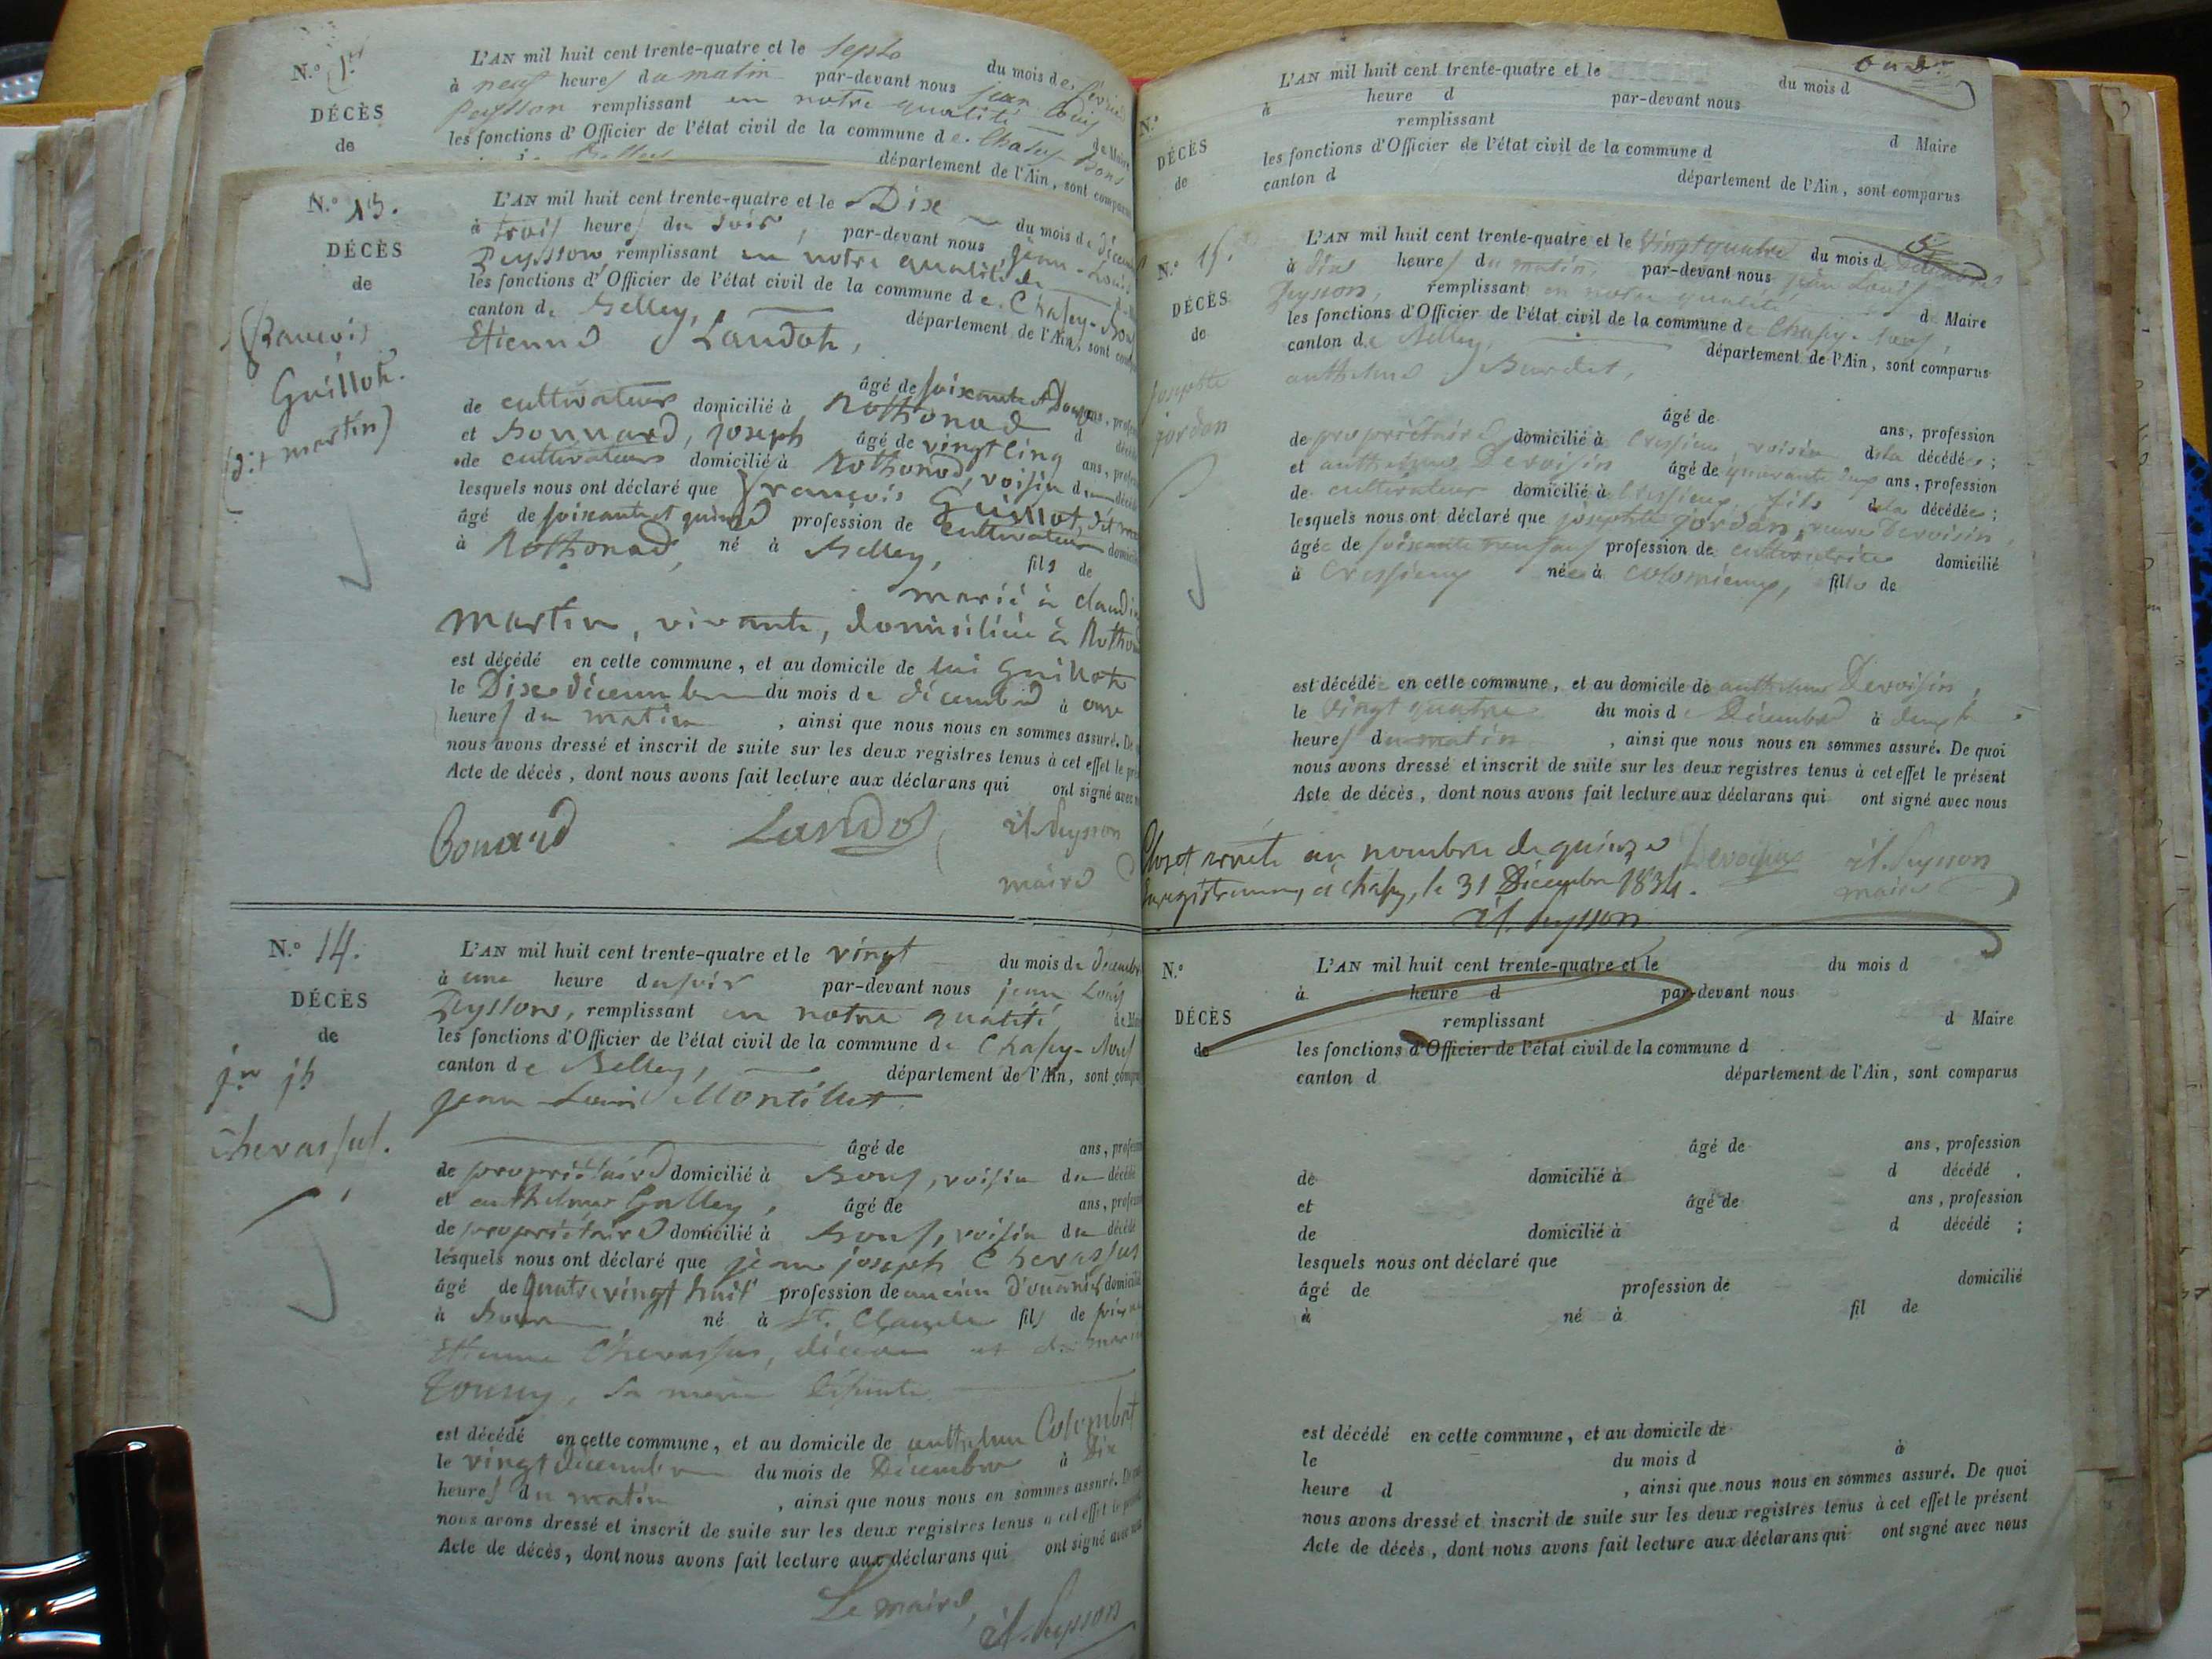 N.º 1.er
L'AN mil huit cent trente-quatre et le sept du mois de février
à neuf heures du matin par-devant nous jean Louis
Peysson remplissant en notre qualité de Maire
DÉCÈS
les fonctions d'Officier de l'état civil de la commune de Chazey-Bons
de
département de l'Ain, sont comparus
N.º 13.
L'AN mil huit cent trente-quatre et le Dix du mois de décembre
à trois heures du soir, par-devant nous jean-Louis
DÉCÈS
Peysson remplissant en notre qualité de
de
les fonctions d'Officier de l'état civil de la commune de Chazey-Bons
canton de Belley, département de l'Ain, sont comp
françois
Guillot.
(dit martin)
Etienne Landot,
âgé de soixante et Douze ans, profes
de cultivateur domicilié à Rothonod d décédé
et Bonnard, joseph âgé de vingt cinq ans, profes
de cultivateur domicilié à Rothonod, voisin du décédé
lesquels nous ont déclaré que françois Guillot, dit mar
âgé de soixante et quinze profession de cultivateur domicilié
à Rothonod, né à Belley, fils de
marié à claudi
martin, vivante, domiciliée à Rothonod
est décédé en cette commune, et au domicile de lui Guillot
le Dix décembre du mois de décembre à onze
heures du matin, ainsi que nous nous en sommes assuré. De
nous avons dressé et inscrit de suite sur les deux registres tenus à cet effet le pré
Acte de décès, dont nous avons fait lecture aux déclarans qui ont signé avec n
Bonard Landot jl. Peysson
maire
N.º 14.
L'AN mil huit cent trente-quatre et le vingt du mois de décembre
à une heure du soir par-devant nous jean Louis
DÉCÈS
Peysson, remplissant en notre qualité de Maire
de
les fonctions d'Officier de l'état civil de la commune de Chazey-Bons
canton de Belley, département de l'Ain, sont compa
jn jh
chevassus.
jean Louis Montillet
âgé de ans, profession
de propriétaire domicilié à Bons, voisin du décédé
et anthelme Galley, âgé de ans, profession
de propriétaire domicilié à Bons, voisin du décédé
lesquels nous ont déclaré que jean joseph Chevassus
âgé de quatre vingt huit profession de ancien Douanier domicilié
à Bons né à St. Claude fils de
Etienne Chevassus, et de
sa mère défunte
est décédé en cette commune, et au domicile de anthelme Colombet
le vingt décembre du mois de Décembre à Dix
heures du matin, ainsi que nous nous en sommes assuré. De
nous avons dressé et inscrit de suite sur les deux registres tenus à cet effet le
Acte de décès, dont nous avons fait lecture aux déclarans qui ont signé avec
Le maire,
jl. Peysson
L'AN mil huit cent trente-quatre et le du mois d
à heure d par-devant nous
N.º
remplissant d Maire
DÉCÈS
les fonctions d'Officier de l'état civil de la commune d
de
canton d département de l'Ain, sont comparus
N.º 15.
L'AN mil huit cent trente-quatre et le vingt quatre du mois de décembre
à dix heures du matin, par-devant nous jean Louis
DÉCÈS
Peysson, remplissant en notre qualité de Maire
de
les fonctions d'Officier de l'état civil de la commune de Chazey-Bons,
canton de Belley, département de l'Ain, sont comparus
josephte
jordan
anthelme Burdet,
âgé de ans, profession
de propriétaire domicilié à Cressieu, voisin de la décédée;
et anthelme Devoisin âgé de quarante deux ans, profession
de cultivateur domicilié à Cressieux, fils de la décédée;
lesquels nous ont déclaré que josephte jordan, veuve Devoisin,
âgée de soixante neuf ans profession de cultivatrice domicilié
à Cressieux née à Colomieux, fille de
est décédée en cette commune, et au domicile de anthelme Devoisin,
le vingt quatre du mois de Décembre à deux
heures du matin, ainsi que nous nous en sommes assuré. De quoi
nous avons dressé et inscrit de suite sur les deux registres tenus à cet effet le présent
Acte de décès, dont nous avons fait lecture aux déclarans qui ont signé avec nous
Clos et arrêté au nombre de quinze Devoisin jl. Peysson
enregistrement, à chazey, le 31 Décembre 1834. maire
jl. Peysson
N.º
L'AN mil huit cent trente-quatre et le du mois d
à heure d par-devant nous
DÉCÈS
remplissant d Maire
de
les fonctions d'Officier de l'état civil de la commune d
canton d département de l'Ain, sont comparus
âgé de ans, profession
de domicilié à d décédé,
et âgé de ans, profession
de domicilié à d décédé;
lesquels nous ont déclaré que
âgé de profession de domicilié
à né à fil de
est décédé en cette commune, et au domicile de
le du mois d à
heure d, ainsi que nous nous en sommes assuré. De quoi
nous avons dressé et inscrit de suite sur les deux registres tenus à cet effet le présent
Acte de décès, dont nous avons fait lecture aux déclarans qui ont signé avec nous